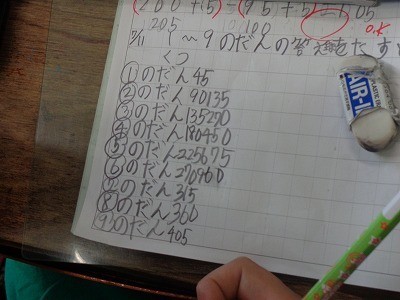 (200+5)-(95+5)=105
205 100 O.K
5/11 1〜9のだんの答えをたす
くつ
①のだん45
②のだん90135
③のだん135270
④のだん180450
⑤のだん225675
⑥のだん270960
⑦のだん315
⑧のだん360
⑨のだん405
AIR-IN